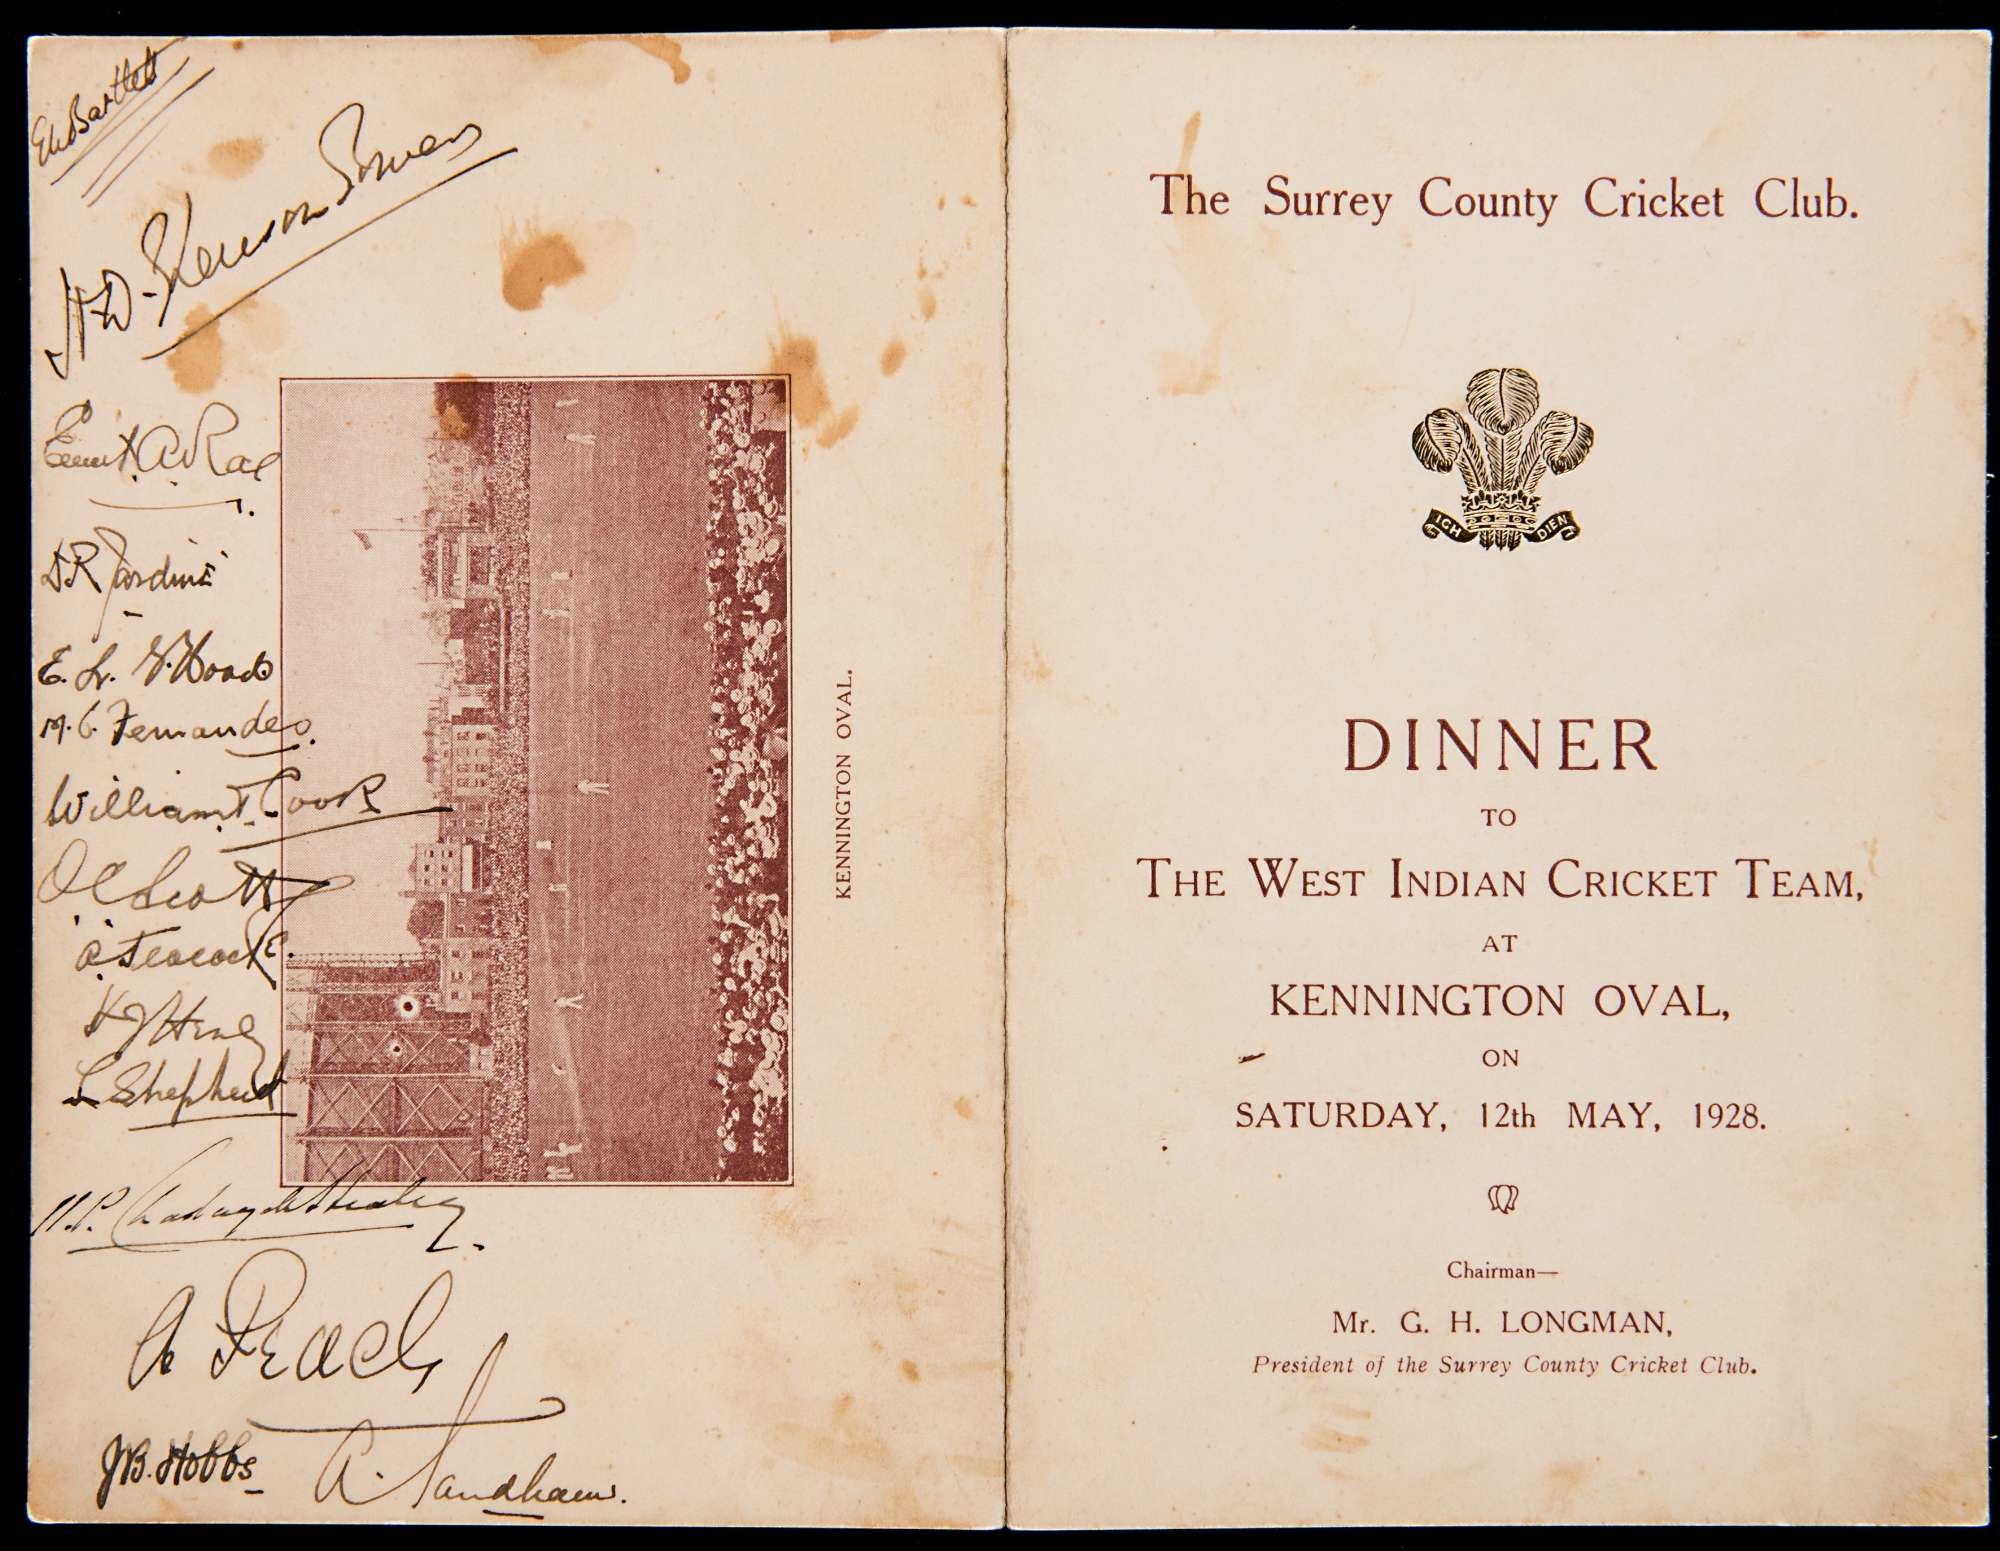 Bartlett
Ernest A. Rae
D R Jardine
E. L. G. Hoad
M. C. Fernandes.
William T. Cook
O C Scott
A. Peacock.
Shepherd
H.P. Chaplin
A Peach
J B. Hobbs
A. Sandham.
KENNINGTON OVAL.
The Surrey County Cricket Club.
ICH DIEN
DINNER
TO
THE WEST INDIAN CRICKET TEAM,
AT
KENNINGTON OVAL,
ON
SATURDAY, 12th MAY, 1928.
Chairman—
Mr. G. H. LONGMAN,
President of the Surrey County Cricket Club.